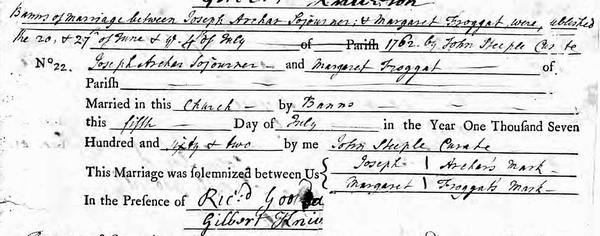 Banns of marriage between Joseph Archar Sojourner & Margaret Froggat were, ublished
the 20. & 27th of June & ye. 4 of July of Parish 1762. by John Steeple Cu te
No 22. Joseph Archar Sojourner and Margaret Froggat of
Parish
Married in this Church by Banns
this fifth Day of July in the Year One Thousand Seven
Hundred and sixty & two by me John Steeple Curate
This Marriage was solemnized between Us { Joseph | Archar's Mark
Margaret | Froggat's Mark
In the Presence of Ric'd
Gilbert